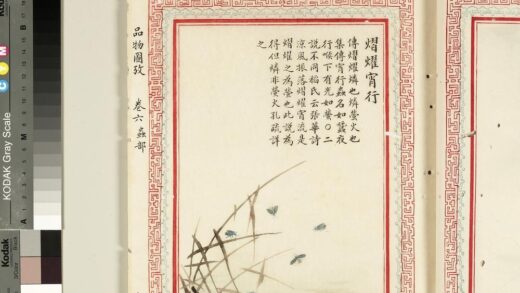 熠燿宵行
傳熠燿燐也燐螢火也
集傳宵行蟲名如蠶夜
行喉下有光如螢○二
說不同稻氏云張華詩
涼風振落熠燿宵流是
熠燿之為螢也此說為
得但燐非螢火孔疏詳
之
品物圖攷 卷六 蟲部
KODAK Gray Scale
C
Y
M
A
Kodak